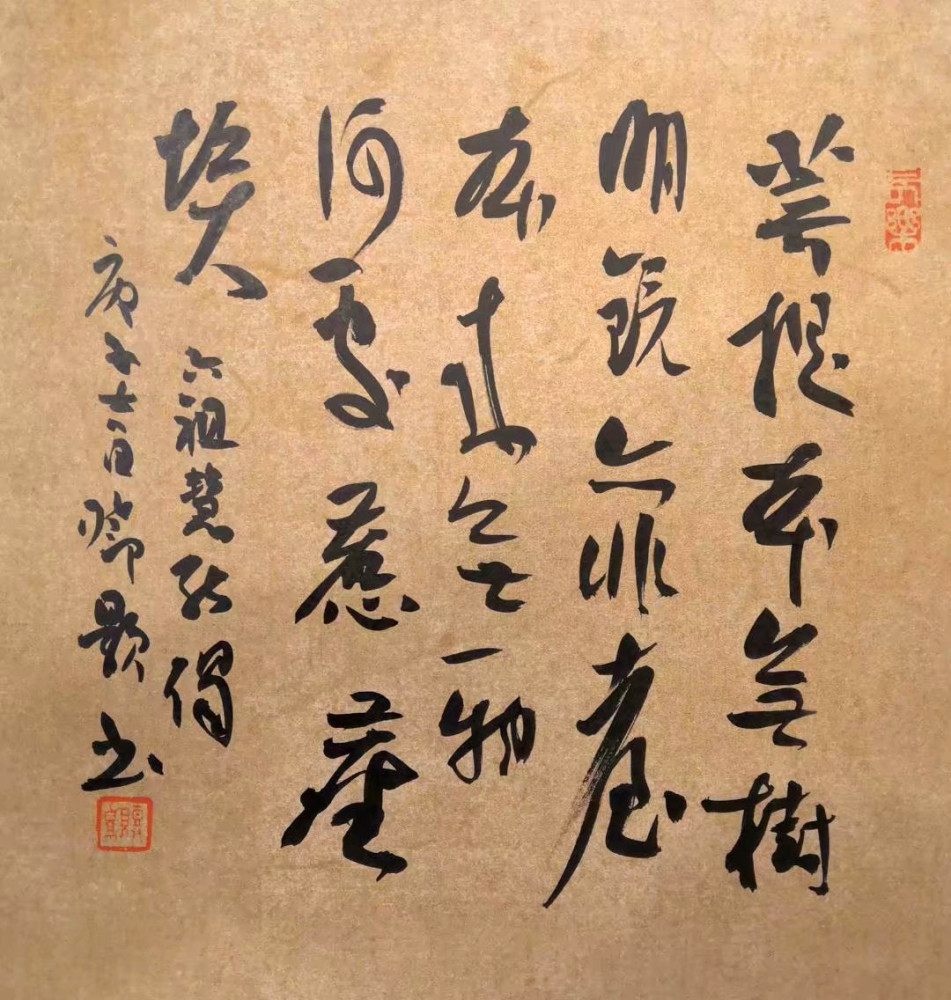 菩提本無樹
明鏡亦非臺
本來無一物
何處惹塵
埃
六祖慧能偈
庚子 題書